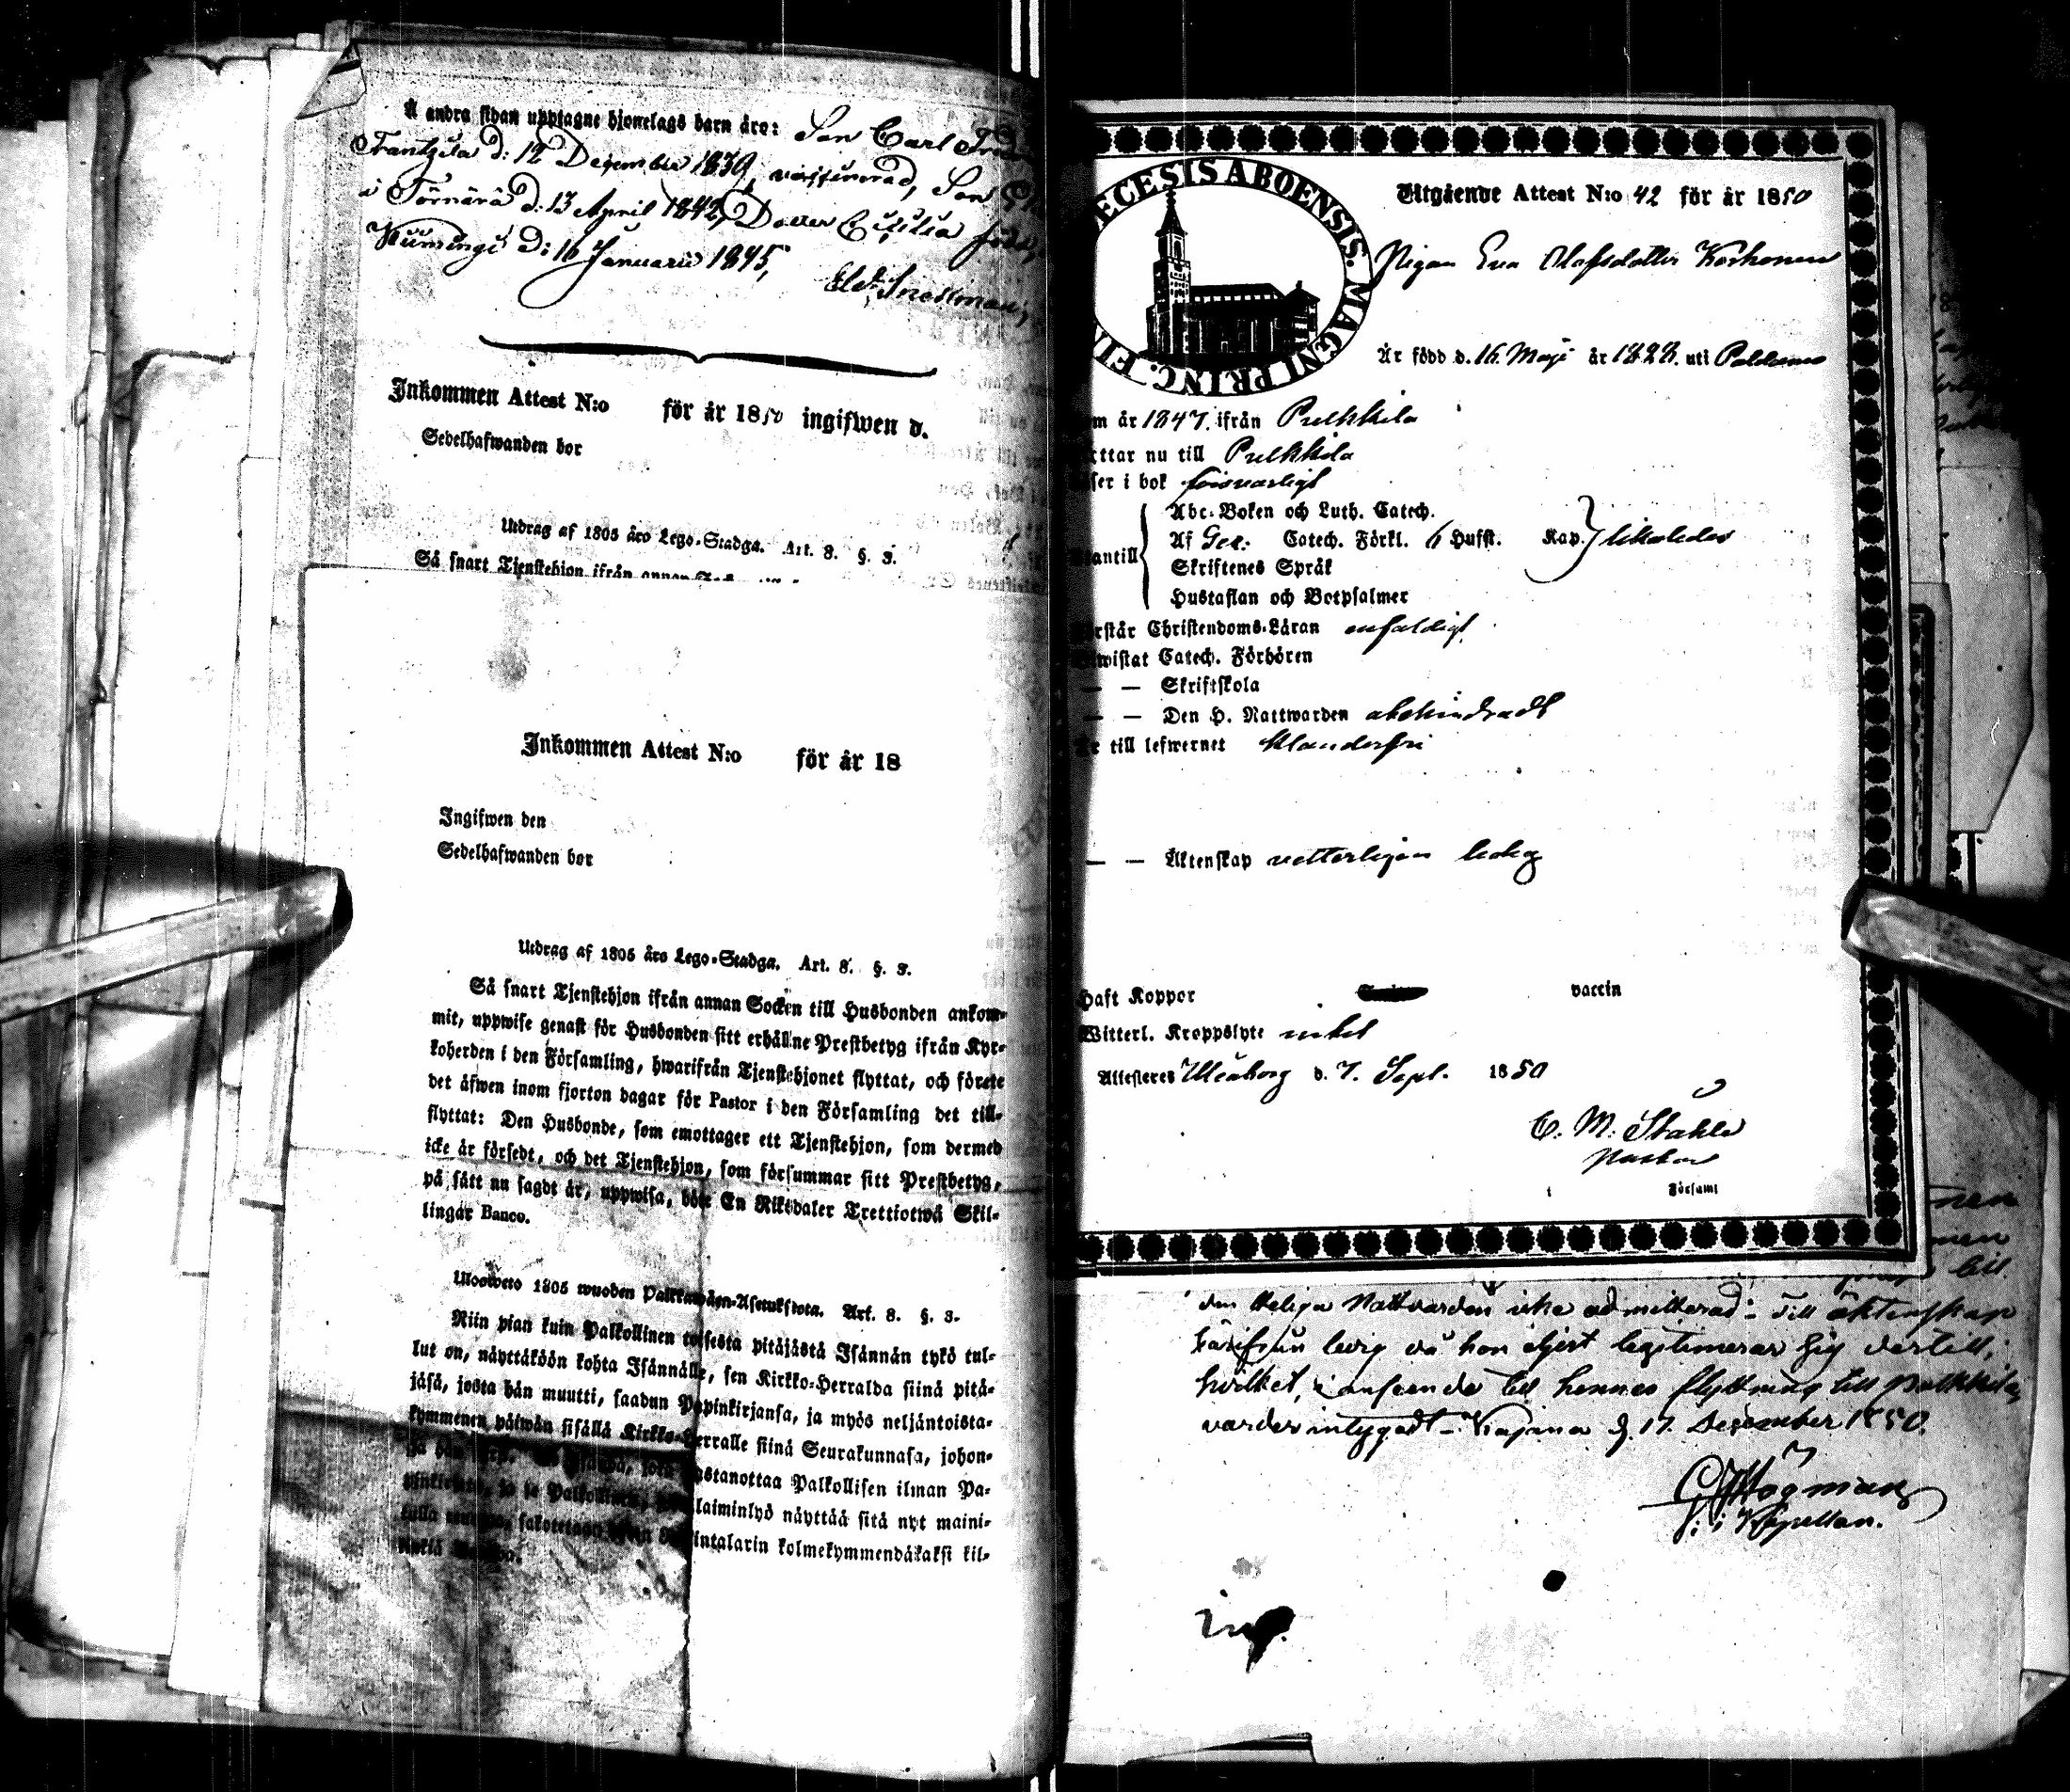 Å andra sidan upptagne hjonelags barn äro: Son Carl
Frantzila d: 12 December 1839, vaccinerad, Son
i Törnävä d. 13 April 1842, Dotter Cecilia född
Kiimingi d: 16 Januarii 1845,
Snellman,
Inkommen Attest N:o för år 1850 ingifwen d.
Sedelhafwanden bor
Utdrag af 1805 års Lego-Stadga. Art. 8. §. 3.
Så snart Tjenstehjon ifrån annan
Inkommen Attest N:o för år 18
Ingifwen den
Sedelhafwanden bor
Utdrag af 1805 års Lego-Stadga. Art. 8. §. 3.
Så snart Tjenstehjon ifrån annan Socken till Husbonden ankom-
mit, uppwise genast för Husbonden sitt erhållne Prestbetyg ifrån Kyr-
koherden i den Församling, hwarifrån Tjenstehjonet flyttat, och förete
det äfwen inom fjorton dagar för Pastor i den Församling det till-
flyttat: Den Husbonde, som emottager ett Tjenstehjon, som dermed
icke är försedt, och det Tjenstehjon, som försummar sitt Prestbetyg,
på sätt nu sagdt är, uppwisa, böte En Riksdaler Trettiotwå Skil-
lingar Banco.
Ulosweto 1805 wuoden Palkkawäen-Asetuksesta. Art. 8. §. 3.
Niin pian kuin Palkollinen toisesta pitäjästä Isännän tykö tul-
lut on, näyttäköön kohta Isännälle, sen Kirkko-Herralda siinä pitä-
jäsä, josta hän muutti, saadun Papinkirjansa, ja myös neljäntoista-
kymmenen päiwän sisällä Kirkko-Herralle siinä Seurakunnasa, johon-
wastanottaa Palkollisen ilman Pa-
laiminlyö näyttää sitä nyt maini-
kolmekymmendäkaksi kil-
ECESIS ABOENSIS. MAGNI PRINC. FI
Utgående Attest N:o 42 för år 1850
Pigan Eva Olafsdotter Korhonen
Är född d. 16. Maji år 1828. uti Paldamo
m år 1847. ifrån Pulkkila
ttar nu till Pulkkila
ser i bok försvarligt
Abc-Boken och Luth. Catech.
Af Catech. Förkl. 6 Hufst. Kap. likaledes
antill
Skriftenes Språk
Hustaflan och Botpsalmer
rstår Christendoms-Läran enfaldigt
wistat Catech. Förhören
— — Skriftskola
— — Den H. Nattwarden obehindradt
r till lefwernet klanderfri
— — Äktenskap vetterligen ledig
Haft Koppor vaccin
Witterl. Kroppslyte intet
Attesteras Uleåborg d. 7. Sept. 1850
C. M. Ståhle
Pastor
Församl
den Heliga Nattvarden icke admitterad: Till äktenskap
härifrån ledig då hon eljest legitimerar sig dertill,
hvilket, i anseende till hennes flyttning till Pulkkila,
varder intygadt – Kajana d. 17. December 1850.
Högman
Kapellan.